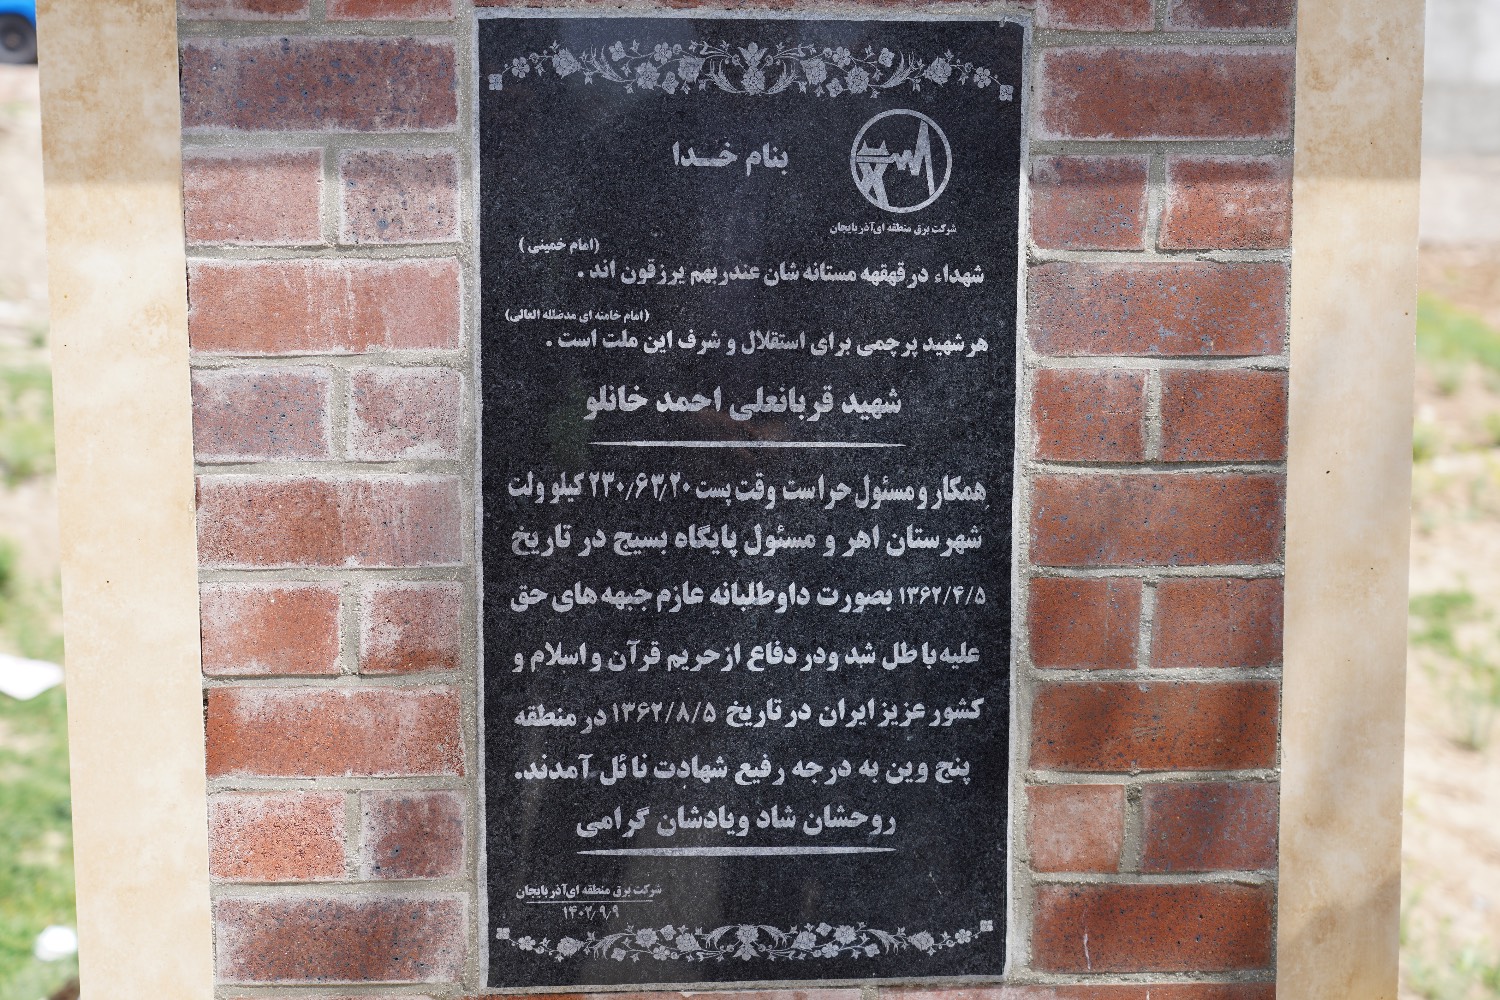 بنام خـــدا
شرکت برق منطقه ای آذربایجان
(امام خمینی)
شهداء در قهقهه مستانه شان عندربهم یرزقون اند.
(امام خامنه ای مدظلله العالی)
هر شهید پرچمی برای استقلال و شرف این ملت است.
شهید قربانعلی احمد خانلو
همکار و مسئول حراست وقت پست ۲۳۰/۶۳/۲۰ کیلو ولت
شهرستان اهر و مسئول پایگاه بسیج در تاریخ
۱۳۶۲/۴/۵ بصورت داوطلبانه عازم جبهه های حق
علیه با طل شد ودر دفاع از حریم قرآن و اسلام و
کشور عزیز ایران در تاریخ ۱۳۶۲/۸/۵ در منطقه
پنج وین به درجه رفیع شهادت نائل آمدند.
روحشان شاد ویادشان گرامی
شرکت برق منطقه ای آذربایجان
۱۴۰۲/۹/۹